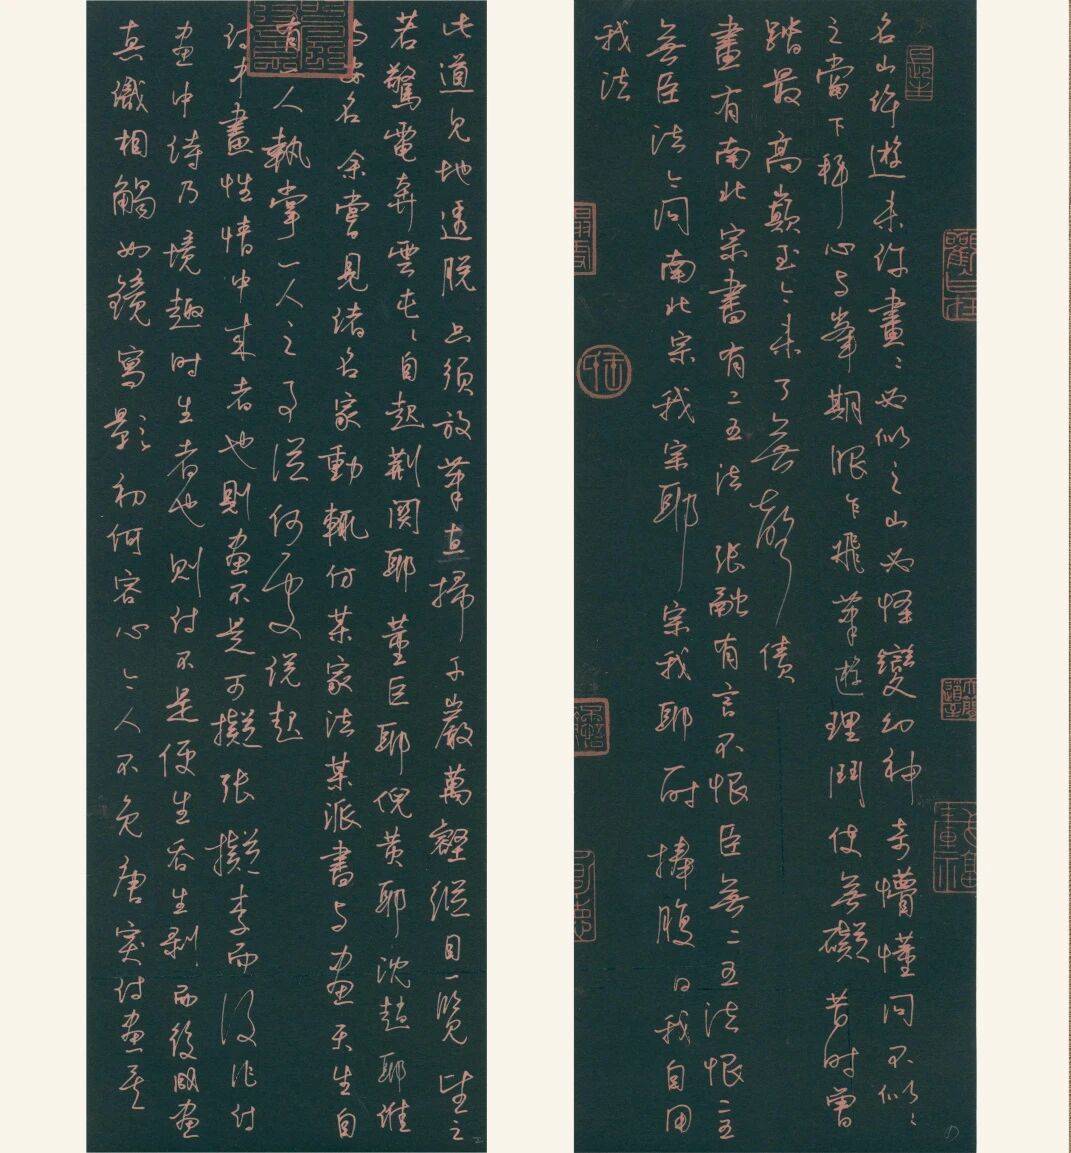 名山許遊未許畫〻必似之山必怪變幻神奇懵懂間不似〻
之當下拜心與峯期眼乍飛筆遊理鬥使無礙昔時曾
踏最高巔至今未了無聲債
畫有南北宗書有二王法張融有言不恨臣無二王法恨二王
無臣法今問南北宗我宗耶宗我耶一時捧腹曰我自用
我法
此道見地透脫只須放筆直掃千巖萬壑縱目一覽望之
若驚電奔雲屯〻自起荊關耶董巨耶倪黃耶沈趙耶誰
與安名余嘗見諸名家動輒仿某家法某派書與画天生自
有一人執掌一人之事從何處說起
詩中畫性情中來者也則画不是可擬張擬李而後作詩
画中詩乃境趣時生者也則詩不是便生吞生剝而後成画
真識相觸如鏡寫影初何容心今人不免唐突詩画矣